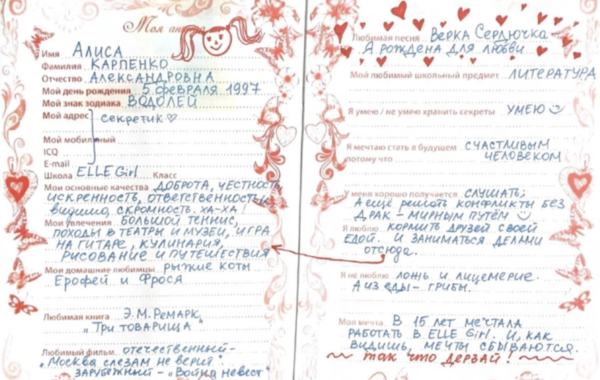 Моя ан
Имя АЛИСА
Фамилия КАРПЕНКО
Отчество АЛЕКСАНДРОВНА
Мой день рождения 5 февраля 1997
Мой знак зодиака ВОДОЛЕЙ
Мой адрес секретик ♡
Мой мобильный
ICQ
E-mail
Школа ELLE Girl Класс
Мои основные качества ДОБРОТА, ЧЕСТНОСТЬ,
ИСКРЕННОСТЬ, ОТВЕТСТВЕННОСТЬ,
ВИДИМО, СКРОМНОСТЬ. ХА-ХА!
Мои увлечения БОЛЬШОЙ ТЕННИС,
ПОХОДЫ В ТЕАТРЫ И МУЗЕИ, ИГРА
НА ГИТАРЕ, КУЛИНАРИЯ,
РИСОВАНИЕ И ПУТЕШЕСТВИЯ
Мои домашние любимцы РЫЖИЕ КОТЫ
ЕРОФЕЙ И ФРОСЯ
Любимая книга Э.М. РЕМАРК,
"ТРИ ТОВАРИЩА"
Любимый фильм ОТЕЧЕСТВЕННЫЙ -
"МОСКВА СЛЕЗАМ НЕ ВЕРИТ"
ЗАРУБЕЖНЫЙ - "ВОЙНА НЕВЕСТ"
Любимая песня ВЕРКА СЕРДЮЧКА
Я РОЖДЕНА ДЛЯ ЛЮБВИ
Мой любимый школьный предмет ЛИТЕРАТУРА
Я умею / не умею хранить секреты УМЕЮ
Я мечтаю стать в будущем СЧАСТЛИВЫМ
потому что ЧЕЛОВЕКОМ
У меня хорошо получается СЛУШАТЬ;
А ЕЩЁ РЕШАТЬ КОНФЛИКТЫ БЕЗ
ДРАК - МИРНЫМ ПУТЁМ
Я люблю КОРМИТЬ ДРУЗЕЙ СВОЕЙ
ЕДОЙ. И ЗАНИМАТЬСЯ ДЕЛАМИ
ОТСЮДА.
Я не люблю ЛОЖЬ И ЛИЦЕМЕРИЕ.
А ИЗ ЕДЫ - ГРИБЫ.
Моя мечта В 15 ЛЕТ МЕЧТАЛА
РАБОТАТЬ В ELLE Girl. И, КАК
ВИДИШЬ, МЕЧТЫ СБЫВАЮТСЯ.
ТАК ЧТО ДЕРЗАЙ!